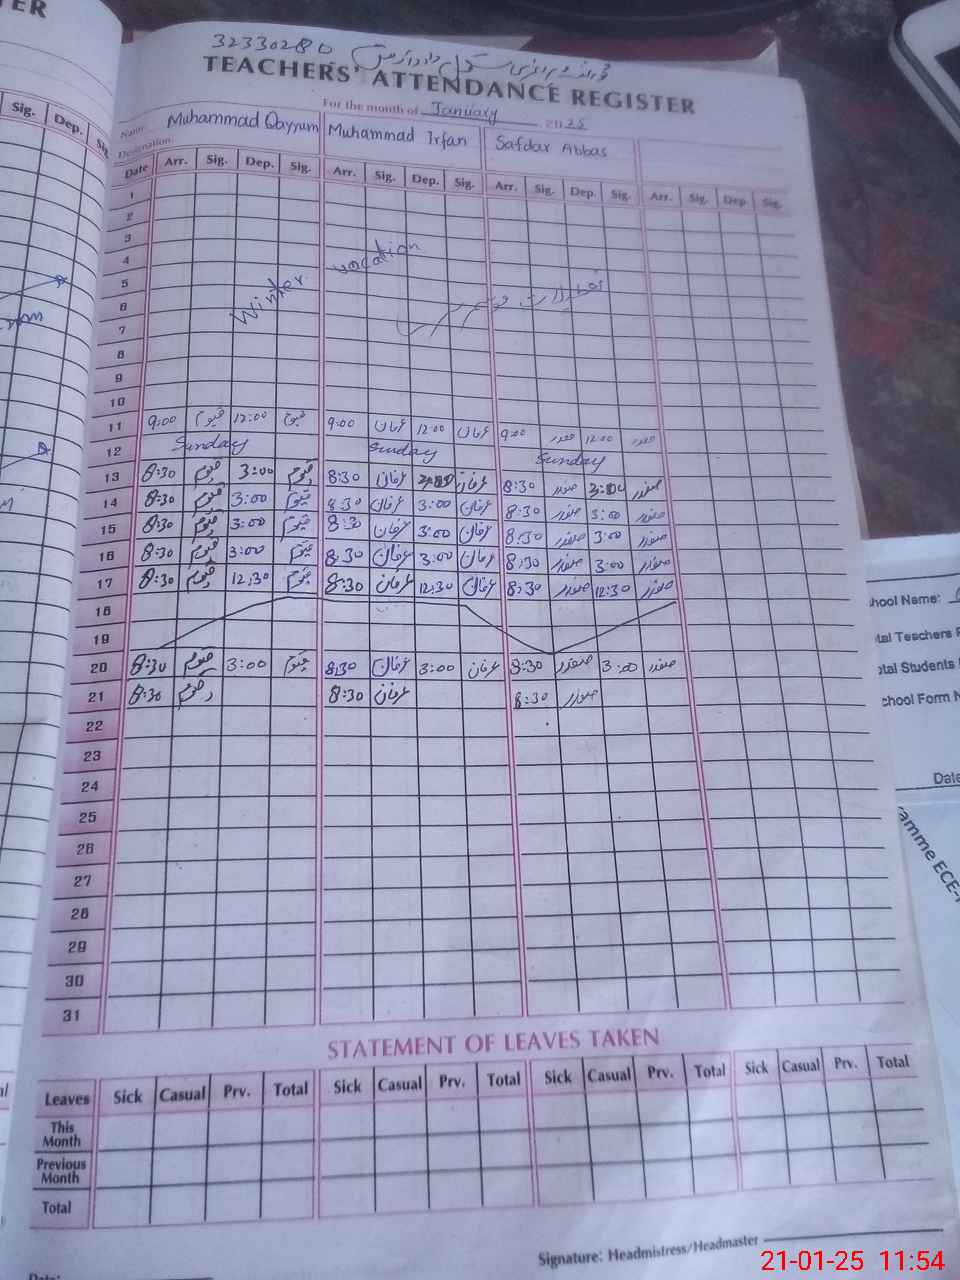 ER
Sig. Dep. Sig
32330280
TEACHERS' ATTENDANCE REGISTER
For the month of January 2025
Name Muhammad Qayyum Muhammad Irfan Safdar Abbas
Designation
Date Arr. Sig. Dep. Sig. Arr. Sig. Dep. Sig. Arr. Sig. Dep. Sig. Arr. Sig. Dep Sig.
1
2
3
4
5
6
7
8
9
10
Winter vacation
11 9:00 قیوم 12:00 قیوم 9:00 عرفان 12:00 عرفان 9:00 صفدر 12:00 صفدر
12 Sunday Sunday Sunday
13 8:30 قیوم 3:00 قیوم 8:30 عرفان 3:00 عرفان 8:30 صفدر 3:00 صفدر
14 8:30 قیوم 3:00 قیوم 8:30 عرفان 3:00 عرفان 8:30 صفدر 3:00 صفدر
15 8:30 قیوم 3:00 قیوم 8:30 عرفان 3:00 عرفان 8:30 صفدر 3:00 صفدر
16 8:30 قیوم 3:00 قیوم 8:30 عرفان 3:00 عرفان 8:30 صفدر 3:00 صفدر
17 8:30 قیوم 12:30 قیوم 8:30 عرفان 12:30 عرفان 8:30 صفدر 12:30 صفدر
18
19
20 8:30 قیوم 3:00 قیوم 8:30 عرفان 3:00 عرفان 8:30 صفدر 3:00 صفدر
21 8:30 قیوم 8:30 عرفان 8:30 صفدر
22
23
24
25
26
27
28
29
30
31
STATEMENT OF LEAVES TAKEN
Leaves Sick Casual Prv. Total Sick Casual Prv. Total Sick Casual Prv. Total Sick Casual Prv. Total
This Month
Previous Month
Total
Signature: Headmistress/Headmaster
Date:
hool Name:
tal Teachers
otal Students
chool Form N
Date
amme ECE-
21-01-25 11:54